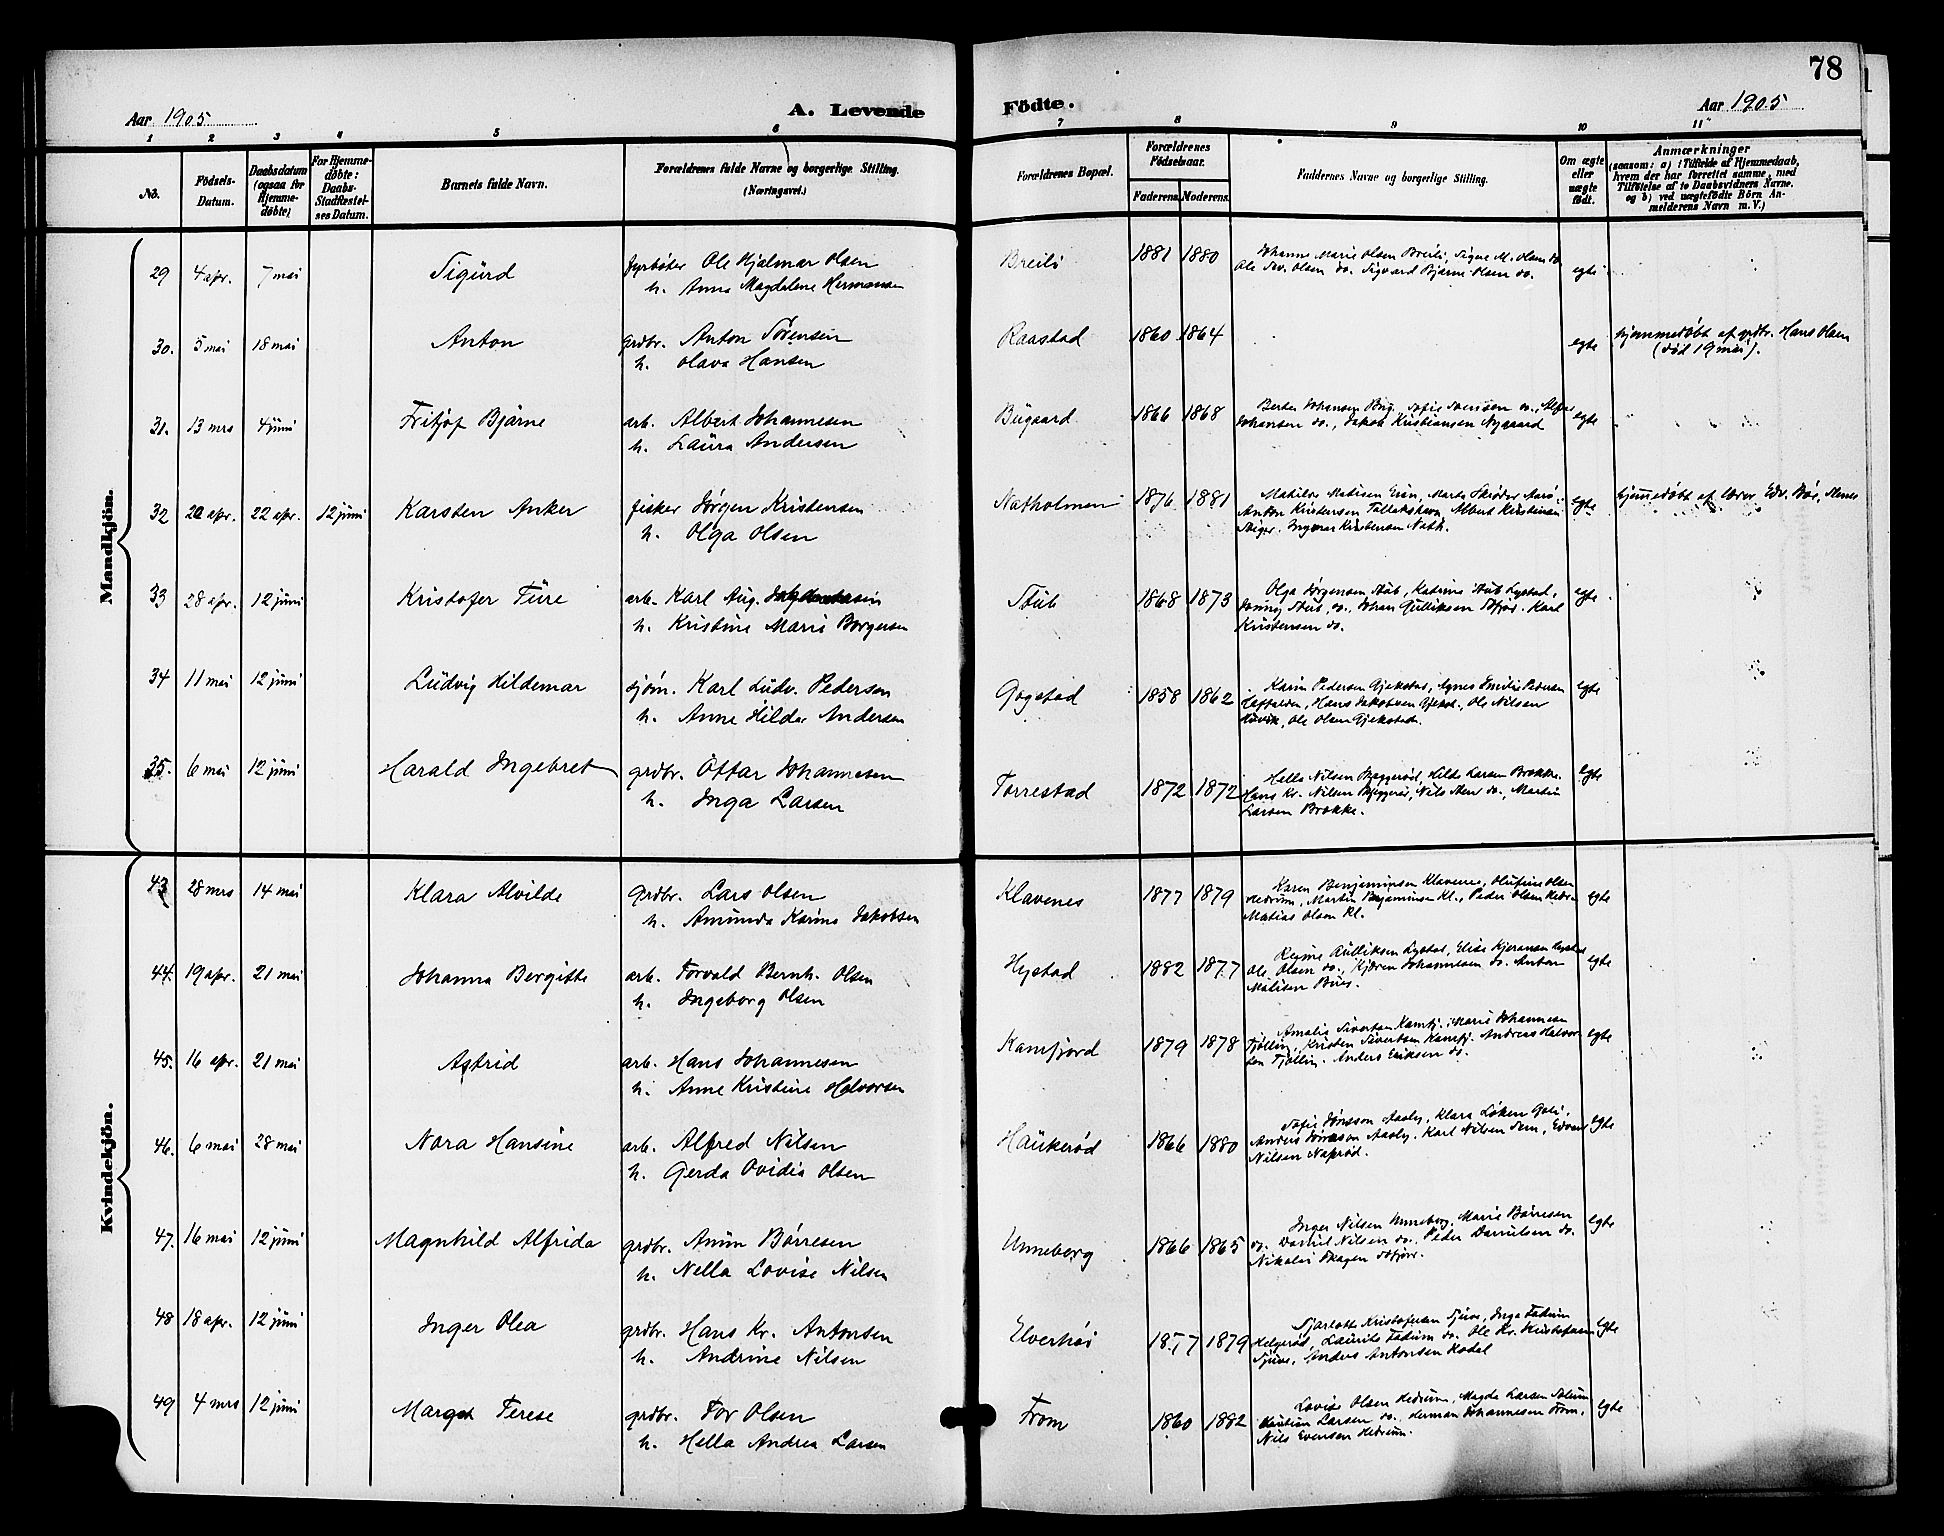 78
Aar 1905
A. Levende
Födte.
Aar 1905
1 2 3 4 5 6 7 8 9 10 11
No.
Födsels-Datum.
Daabsdatum (ogsaa for Hjemme-döbte)
For Hjemme-döbte: Daabs-Stadfæstel-ses Datum.
Barnets fulde Navn.
Forældrenes fulde Navne og borgerlige Stilling. (Næringsvei.)
Forældrenes Bopæl.
Forældrenes Födselsaar.
Faderens. Moderens.
Faddernes Navne og borgerlige Stilling.
Om ægte eller uægte födt.
Anmærkninger
(saasom: a) i Tilfælde af Hjemmedaab, hvem der har forrettet samme, med Tilföielse af to Daabsvidners Navne, og b) ved uægtefödte Börn An-melderens Navn m. V.)
Mandkjön.
29 4 apr. 7 mai Sigurd fyrbøter Ole Hjalmar Olsen
h. Anna Magdalene Hermansen
Breili 1881 1880 Johanne Marie Olsen Breili, Signe M. Olsen do.
Ole Olsen do. Sigvard Bjarne Olsen do. egte
30. 5 mai 18 mai Anton grdbr. Anton Sørensen
h. Olava Hansen
Raastad 1860 1864 egte hjemmedøbt af grdbr. Hans Olsen
(død 19 mai).
31. 13 mrs 4 juni Fritjof Bjarne arb. Albert Johannesen
h. Laura Andersen
Bugaard 1866 1868 Johansen Bug. Sofie Iversen do.,
Johansen do., Jakob Kristiansen Nygaard egte
32 20 apr. 22 apr. 12 juni Karsten Anker fisker Jørgen Kristensen
h. Olga Olsen
Natholmen 1876 1881 Matilde Matisen
Anton Kristensen Albert Kristensen
Ingvar Kristensen Nath. egte
hjemmedøbt af lærer Edv. Bøe,
33 28 apr. 12 juni Kristofer Ture arb. Karl Aug.
h. Kristine Marie Borgersen
Stub 1868 1873 Olga Jørgensen Stub, Katrine Stub Lystad,
Stub, do. Johan Gulliksen Karl
Kristensen do. egte
34 11 mai 12 juni Ludvig Hildemar sjøm. Karl Ludv. Pedersen
h. Anne Hilda Andersen
Gogstad 1858 1862 Karin Pedersen Gjekstad, Agnes Emilie Pedersen
Haftalden, Hans Jakobsen Gjekst., Ole Nilsen
Ole Olsen Gjekstad. egte
35. 6 mai 12 juni Harald Ingebret grdbr. Ottar Johannesen
h. Inga Larsen
Torrestad 1872 1872 Hella Nilsen Skjeggerød, Hilda Larsen Brekke.
Hans Kr. Nilsen Skjeggerød, Nils do., Martin
Larsen Brekke. egte
Kvindekjön.
43 28 mrs 14 mai Klara Alvilde Grdbr. Lars Olsen
h. Amunda Karine Jakobsen
Klavenes 1877 1879 Karen Benjaminsen Klavenes, Olufine Olsen
Hedrum, Martin Benjaminsen Kl., Peder Olsen Hedr.
Matias Olsen Kl. egte
44. 19 apr. 21 mai Johanna Bergitte arb. Torvald Bernh. Olsen
h. Ingeborg Olsen
Hystad 1882 1877 Regine Gulliksen Lystad, Elise Kjeransen Lystad
Ole Olsen do., Kjøren Johannesen do. Anton
Matisen egte
45. 16 apr. 21 mai Astrid arb. Hans Johannesen
h. Anne Kristine Halvorsen
Kamfjord 1879 1878 Amalie Sivertsen Kamfj. Marie Johannesen
Tjølling, Kristen Sivertsen Kamfj. Andreas Halvor-
sen Tjølling. Anders Eriksen do. egte
46. 6 mai 28 mai Nora Hansine arb. Alfred Nilsen
h. Gerda Ovidia Olsen
Haukerød 1866 1880 Sofie Jønsson Aasly, Klara Løken Goli,
Anders Jønsson Aasly, Karl Nilsen Sem, Edvar
Nilsen Naprød. egte
47. 16 mai 12 juni Magnhild Alfrida grdbr. Anun Børresen
h. Nella Lovise Nilsen
Unneberg 1866 1865 Inger Nilsen Unneberg, Marie Børresen
do. Daniel Nilsen do. Peder Danielsen do.
Nikolai Skagen Sdfjord. egte
48 18 apr. 12 juni Inger Olea grdbr. Hans Kr. Antonsen
h. Andrine Nilsen
Elverhøi 1877 1879 Sjarlotte Kristofersen Tjuve, Inga Fadum
Helgerød, Laurits Fadum do. Ole Kr. Kristofersen
Tjuve, Anders Antonsen Kodal egte
49 4 mrs 12 juni Margot Terese grdbr. Tor Olsen
h. Hella Andrea Larsen
From 1860 1882 Lovise Olsen Hedrum, Magda Larsen
Larsen do., Herman Johannesen From,
Nils Evensen Hedrum. egte